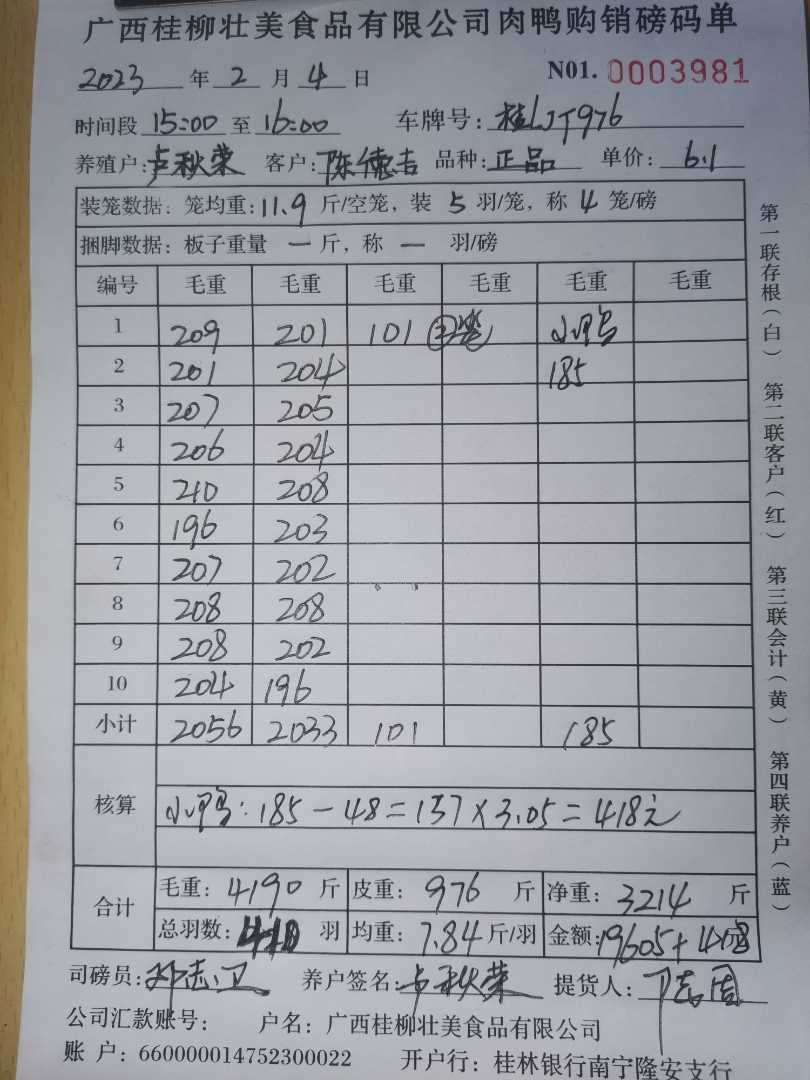 广西桂柳壮美食品有限公司肉鸭购销磅码单
2023 年 2 月 4 日 N01. 0003981
时间段 15:00 至 16:00 车牌号: 桂LJT976
养殖户: 卢秋荣 客户: 陈德吉 品种: 正品 单价: 6.1
装笼数据: 笼均重: 11.9 斤/空笼, 装 5 羽/笼, 称 4 笼/磅
捆脚数据: 板子重量 一 斤, 称 一 羽/磅
编号 毛重 毛重 毛重 毛重 毛重 毛重
1 209 201 101 ②笼 小鸭
2 201 204 185
3 207 205
4 206 204
5 210 208
6 196 203
7 207 202
8 208 208
9 208 202
10 204 196
小计 2056 2033 101 185
核算
小鸭: 185 - 48 = 137 × 3.05 = 418元
合计
毛重: 4190 斤 皮重: 976 斤 净重: 3214 斤
总羽数: 410 羽 均重: 7.84 斤/羽 金额: 19605 + 418
司磅员: 养户签名: 卢秋荣 提货人:
公司汇款账号: 户名: 广西桂柳壮美食品有限公司
账 户: 660000014752300022 开户行: 桂林银行南宁隆安支行
第一联存根(白) 第二联客户(红) 第三联会计(黄) 第四联养户(蓝)